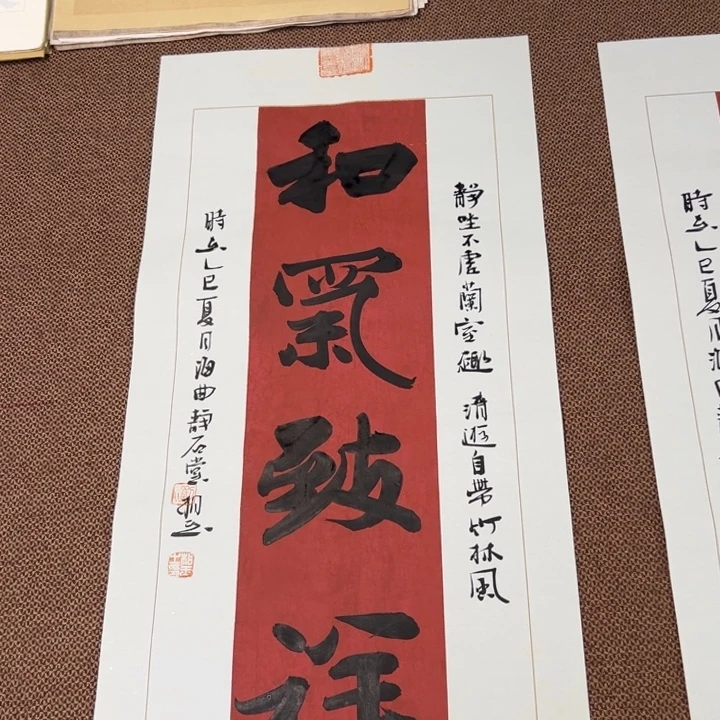 静坐不虚蘭室趣 清遊自帶竹林風
和氣致祥
時在乙巳夏月海曲静石堂
時在乙巳夏月